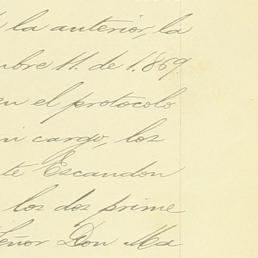 á la anterior, la
mbre 11. de 1.869
en el protocolo
mi cargo, los
te Escandon
los dos prime
Señor Don Ma